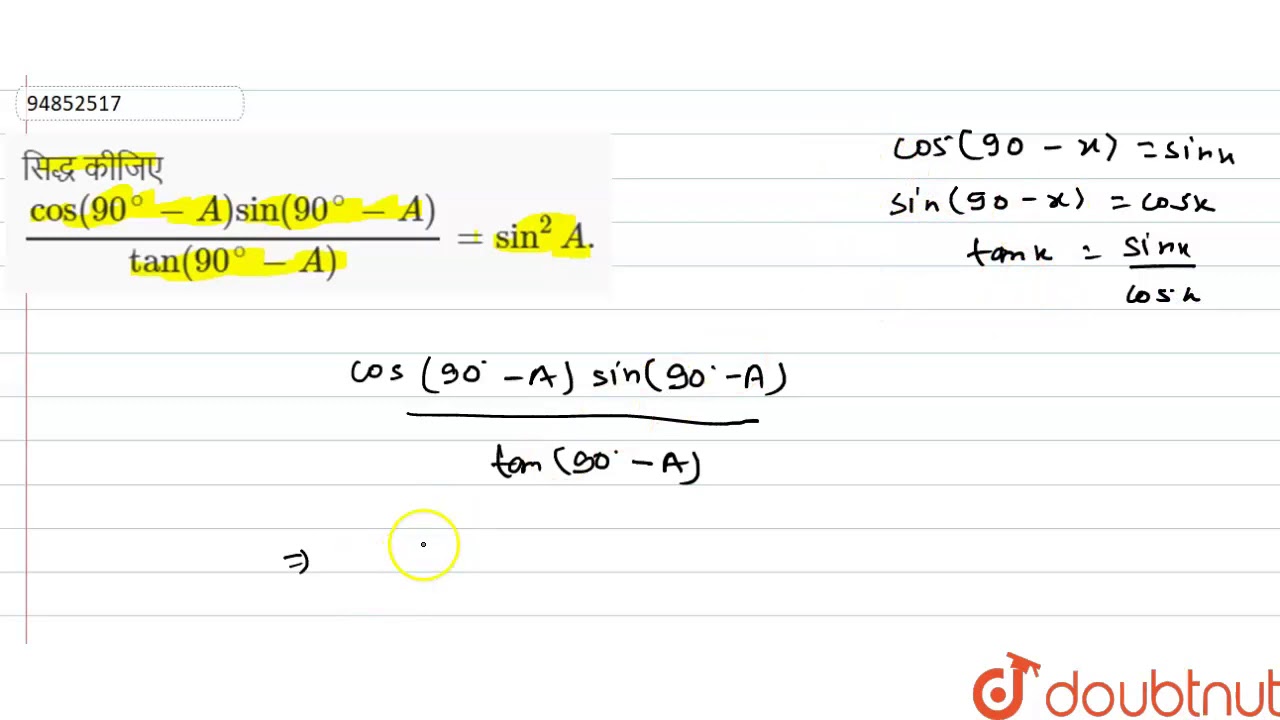 94852517
सिद्ध कीजिए
cos(90° − A)sin(90° − A)
tan(90° − A)
= sin² A.
cos(90 - x) = sinx
sin(90 - x) = cosx
tanx = sinx
cosx
cos (90° - A) sin(90° - A)
tan (90° - A)
⇒
doubtnut